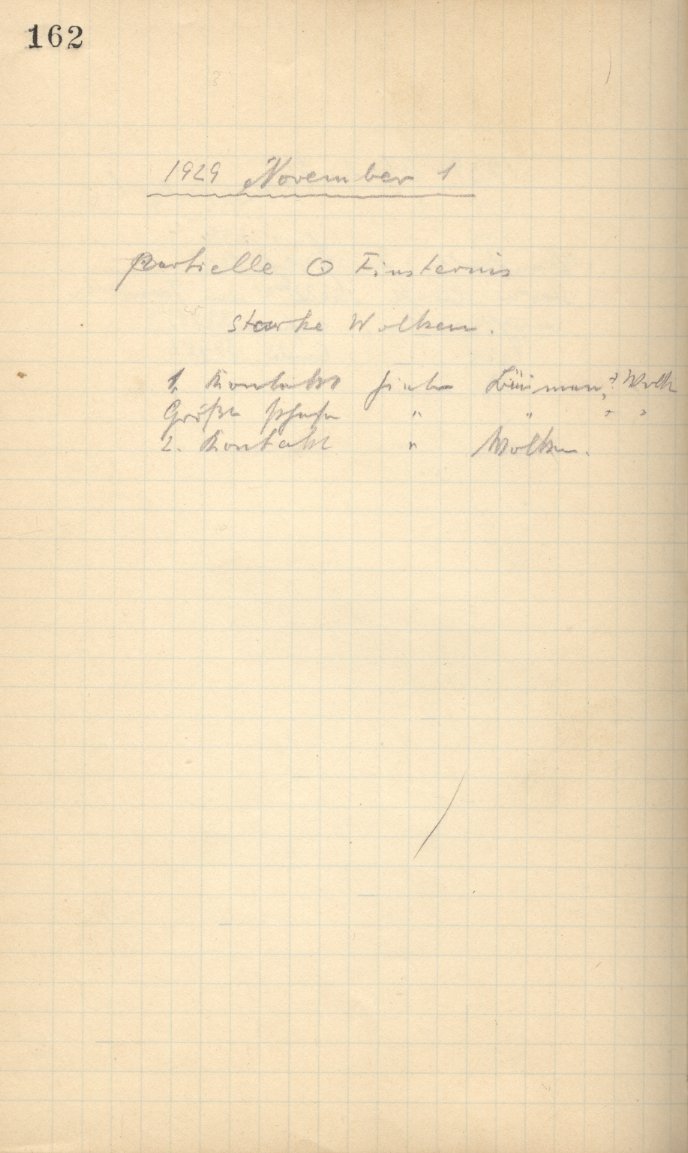 162
1929 November 1
partielle ☉ Finsternis
starke Wolken.
1. Kontakt hinter Bäumen, u. Wolk
Größte Phase " " " "
2. Kontakt " Wolken.